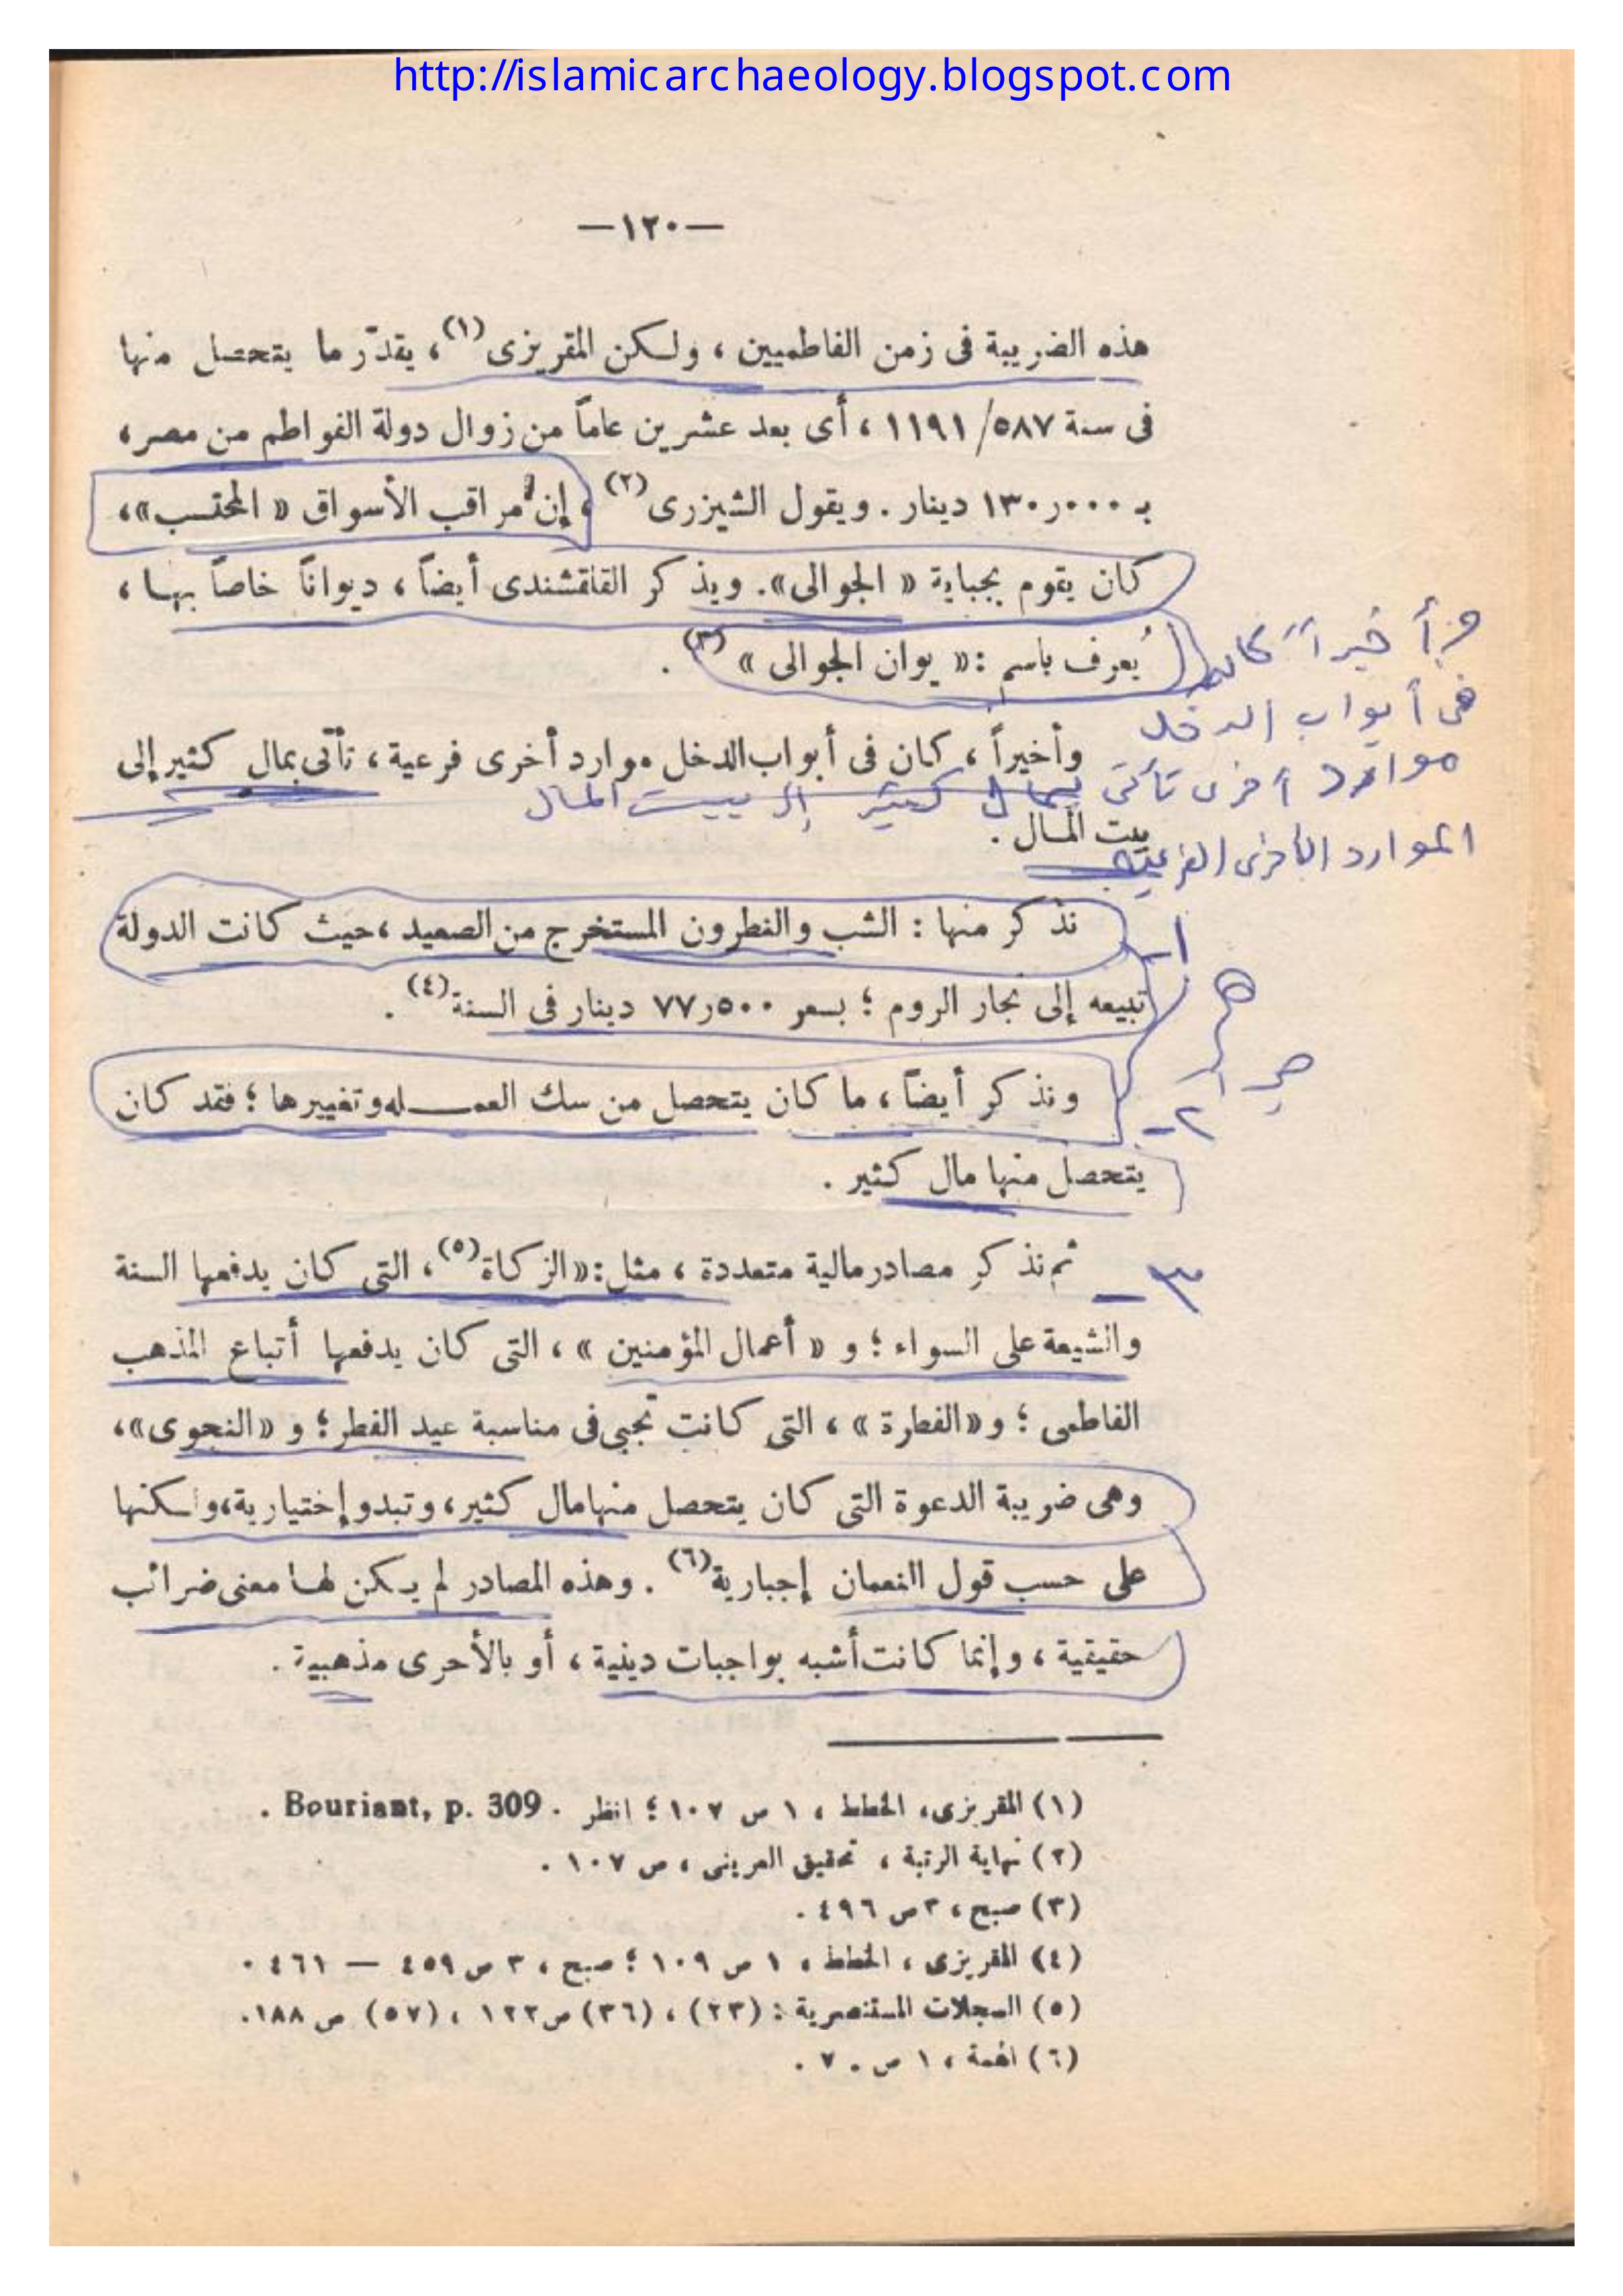 http://islamicarchaeology.blogspot.com
—١٢٠—
هذه الضريبة فى زمن الفاطميين ، ولكن المقريزى(١)، يقدّر ما يتحصل منها
فى سنة ٥٨٧/ ١١٩١ ، أى بعد عشرين عاماً من زوال دولة الفواطم من مصر،
بـ ١٣٠ر٠٠٠ دينار . ويقول الشيزرى(٢) ، إن مراقب الأسواق « المحتسب»،
كان يقوم بجباية « الجوالى». ويذكر القلقشندى أيضاً ، ديواناً خاصاً بها ،
يُعرف باسم :« يوان الجوالى » (٣) .
و أخيراً كان
فى أبواب الدخل
وأخيراً ، كان فى أبواب الدخل موارد أخرى فرعية ، تأتى بمال كثير إلى
موارد أخرى تأتى بمال كثير إلى بيت المال
بيت المال .
الموارد الأخرى الفرعية
١-
نذكر منها : الشب والنطرون المستخرج من الصعيد ، حيث كانت الدولة
تبيعه إلى تجار الروم ؛ بسعر ٧٧ر٥٠٠ دينار فى السنة(٤) .
ونذكر أيضاً ، ما كان يتحصل من سك العمـــله وتغييرها ؛ فقد كان
٢-
يتحصل منها مال كثير .
٣-
ثم نذكر مصادر مالية متعددة ، مثل :«الزكاة(٥)، التى كان يدفعها السنة
والشيعة على السواء ؛ و « أعمال المؤمنين » ، التى كان يدفعها أتباع المذهب
الفاطمى ؛ و«الفطرة » ، التى كانت تجبى فى مناسبة عيد الفطر ؛ و «النجوى»،
وهى ضريبة الدعوة التى كان يتحصل منها مال كثير ، وتبدو إختيارية، ولكنها
على حسب قول النعمان إجبارية(٦) . وهذه المصادر لم يكن لها معنى ضرائب
حقيقية ، وإنما كانت أشبه بواجبات دينية ، أو بالأحرى مذهبية .
(١) المقريزى، الخطط ، ١ ص ١٠٧ ؛ انظر . Bouriant, p. 309 .
(٢) نهاية الرتبة ، تحقيق العرينى ، ص ١٠٧ .
(٣) صبح ، ٣ ص ٤٩٦ .
(٤) المقريزى ، الخطط ، ١ ص ١٠٩ ؛ صبح ، ٣ ص ٤٥٩ — ٤٦١ .
(٥) السجلات المستنصرية : (٢٣) ، (٣٦) ص ١٢٢ ، (٥٧) ص ١٨٨.
(٦) الهمة ، ١ ص ٧٠ .